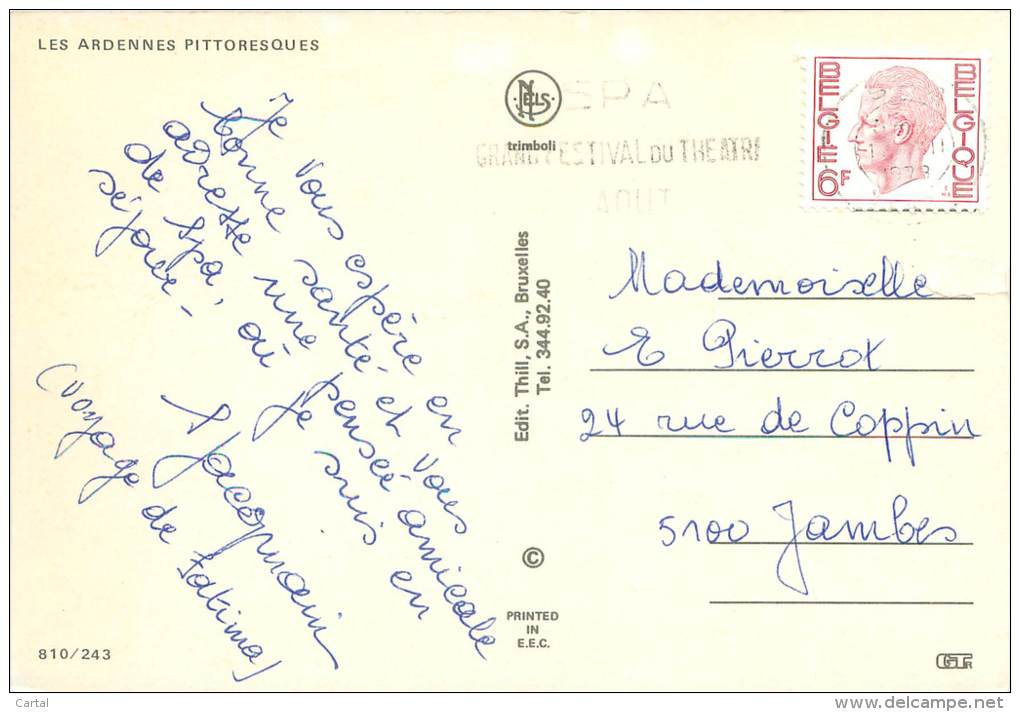 LES ARDENNES PITTORESQUES
Je vous espère en
bonne santé et vous
adresse une pensée amicale
de Spa, où je suis en
séjour -
S Jacqmain
(Voyage de Fatima)
810/243
NELS
trimboli
SPA
GRAND FESTIVAL DU THEATRE
AOUT
BELGIE
BELGIQUE
6F
Edit. Thill, S.A., Bruxelles
Tel. 344.92.40
©
PRINTED
IN
E.E.C.
Mademoiselle
E Pierrot
24 rue de Coppin
5100 Jambes
Cartal
www.delcampe.net